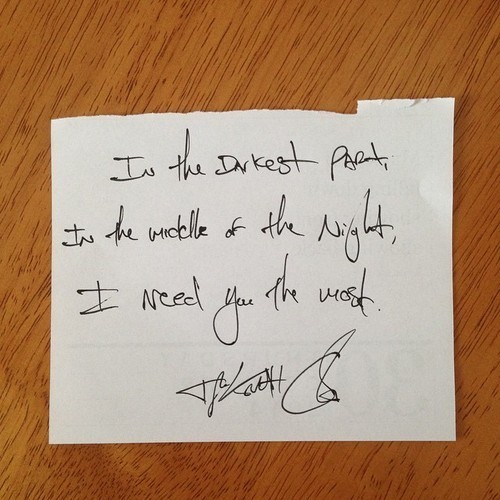 In the Darkest Part,
In the middle of the Night,
I Need you the most.